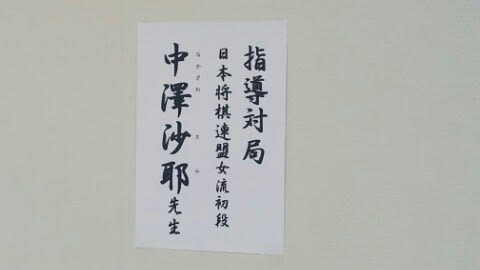 指導対局
日本将棋連盟女流初段
中澤沙耶先生
なかざわ さや